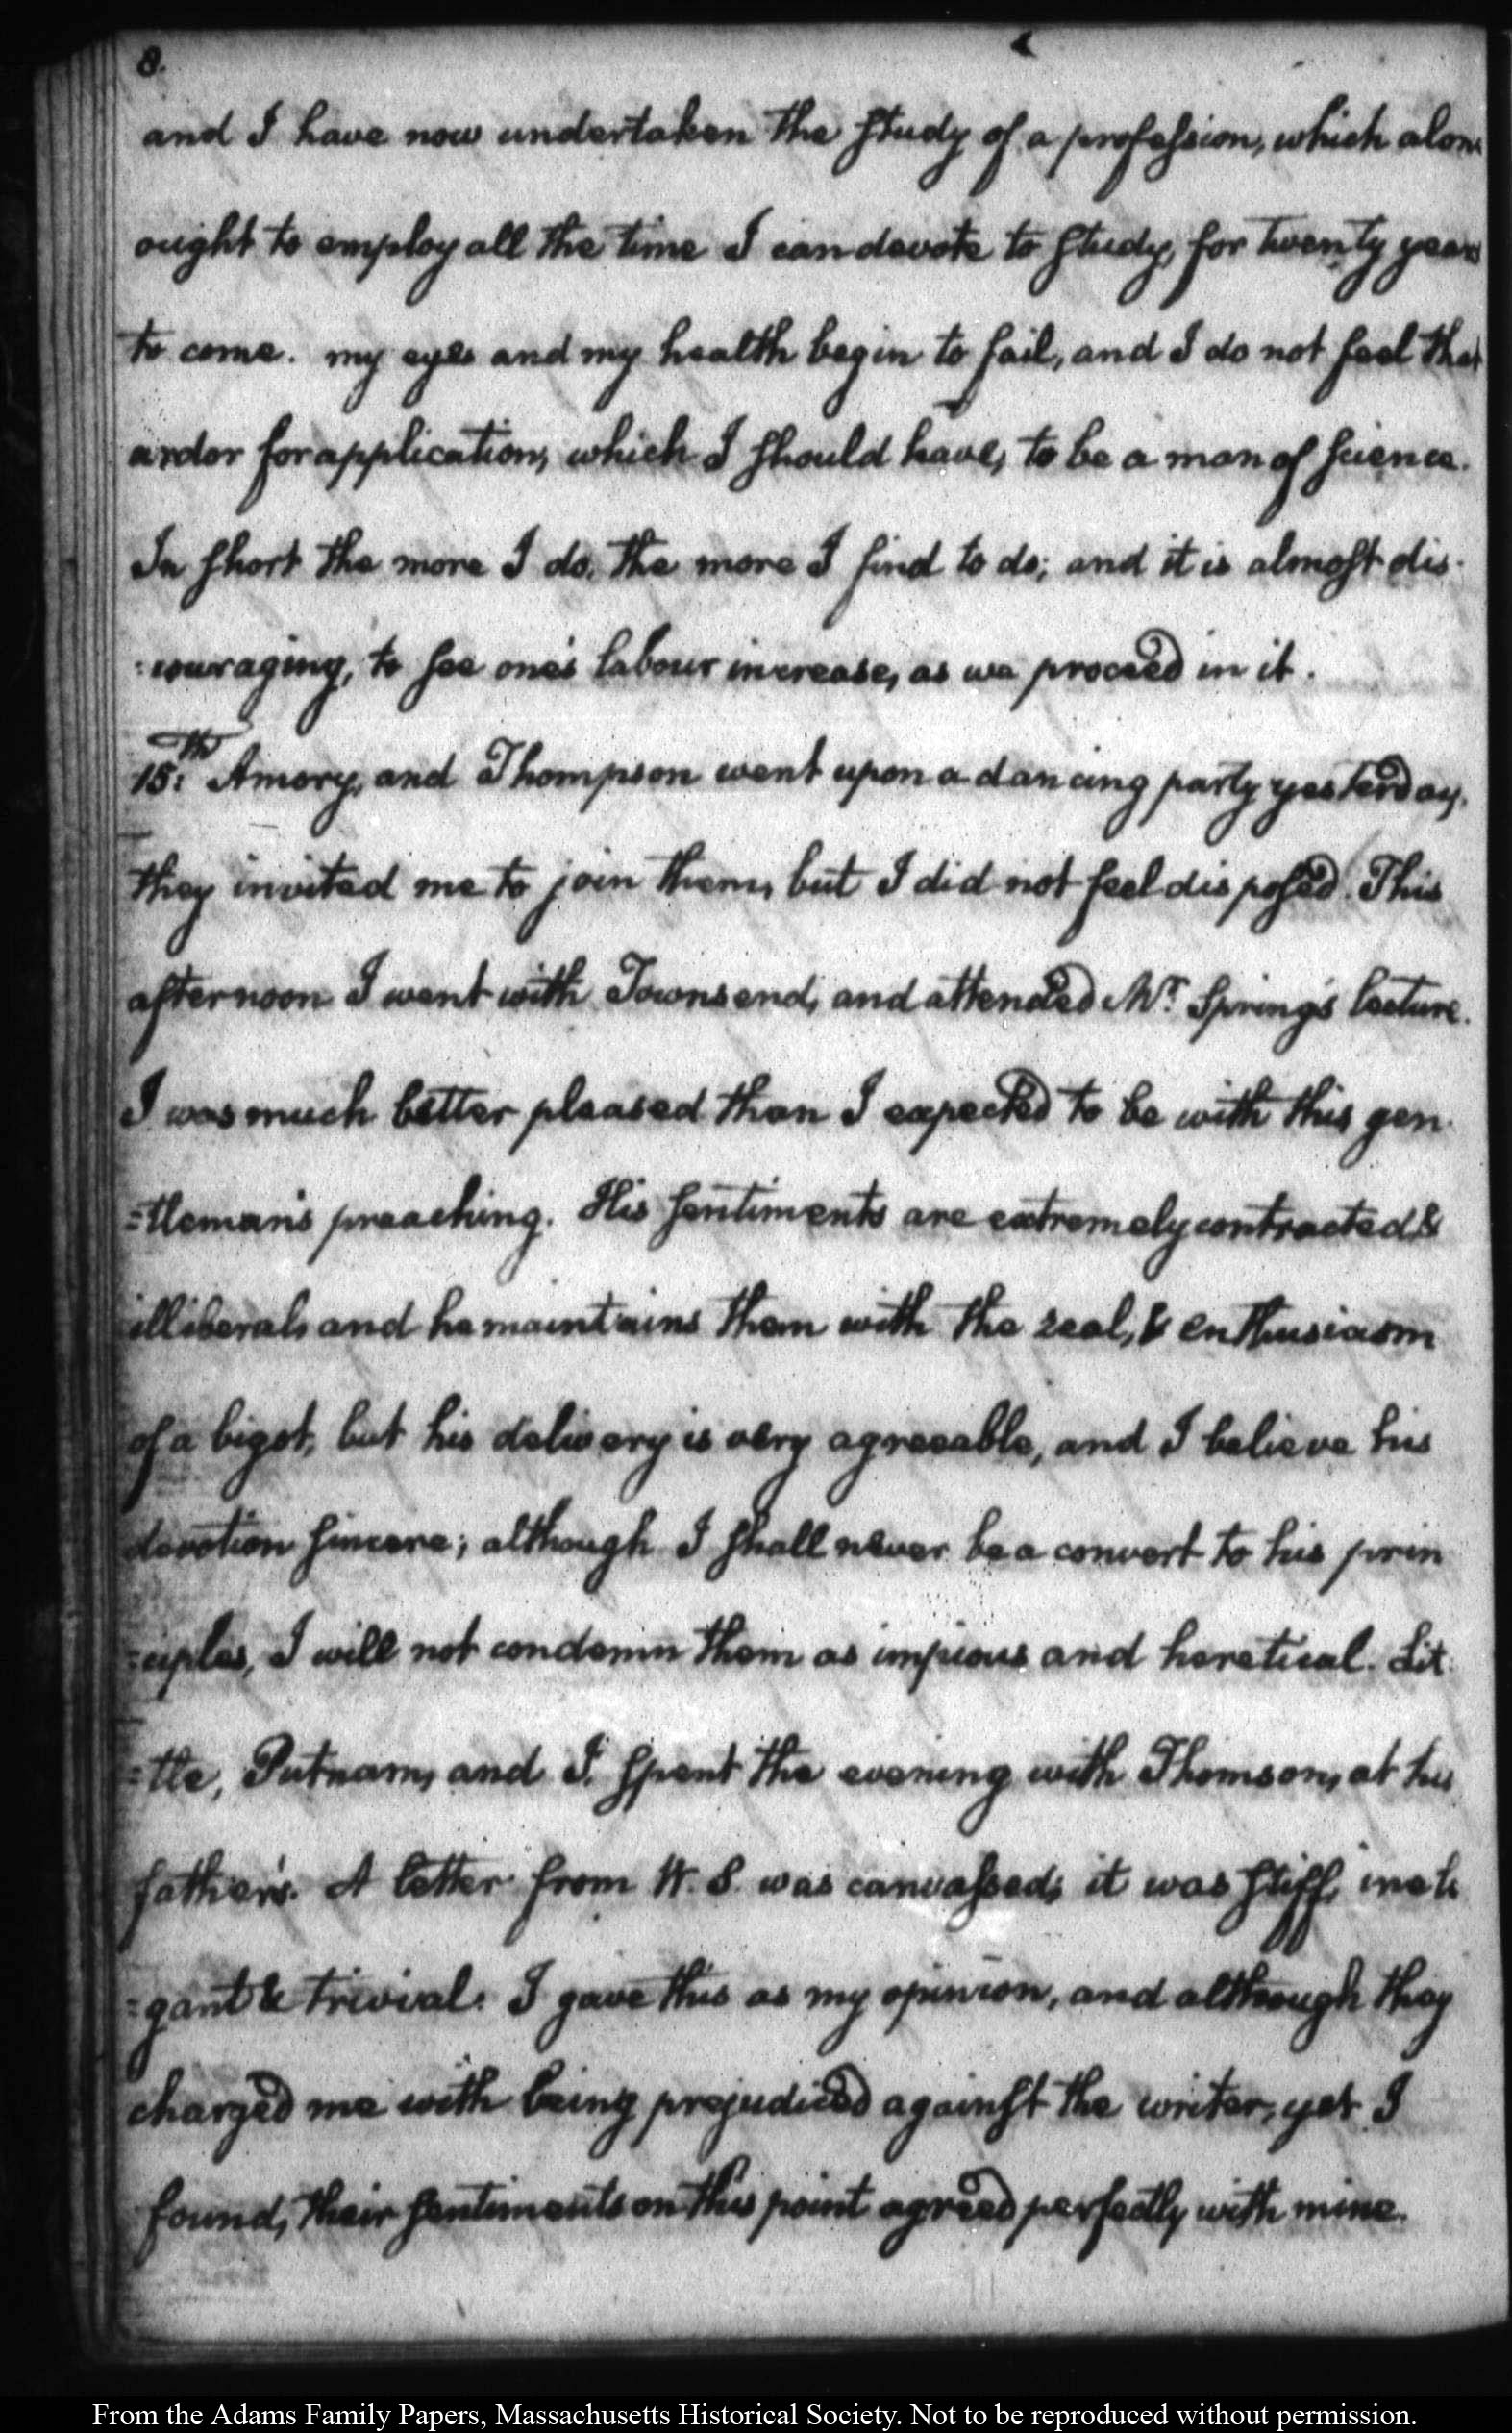 8.
and I have now undertaken the study of a profession, which alone
ought to employ all the time I can devote to study, for twenty years
to come. my eyes and my health begin to fail, and I do not feel that
ardor for application, which I should have, to be a man of science.
In short the more I do, the more I find to do; and it is almost dis-
:couraging, to see one's labour increase, as we proceed in it.
15:th Amory, and Thompson went upon a dancing party yesterday.
they invited me to join them, but I did not feel disposed. This
afternoon I went with Townsend, and attended Mr. Spring's lecture.
I was much better pleased than I expected to be with this gen-
=tleman's preaching. His sentiments are extremely contracted &
illiberal, and he maintains them with the zeal, & enthusiasm
of a bigot, but his delivery is very agreeable, and I believe his
devotion sincere; although I shall never be a convert to his prin
=ciples, I will not condemn them as impious and heretical. Lit-
=tle, Putnam, and I, spent the evening with Thomson, at his
father's. A letter from W. S. was canvassed; it was stiff, inele
=gant & trivial. I gave this as my opinion, and although they
charged me with being prejudiced against the writer, yet I
found, their sentiments on this point agreed perfectly with mine.
From the Adams Family Papers, Massachusetts Historical Society. Not to be reproduced without permission.